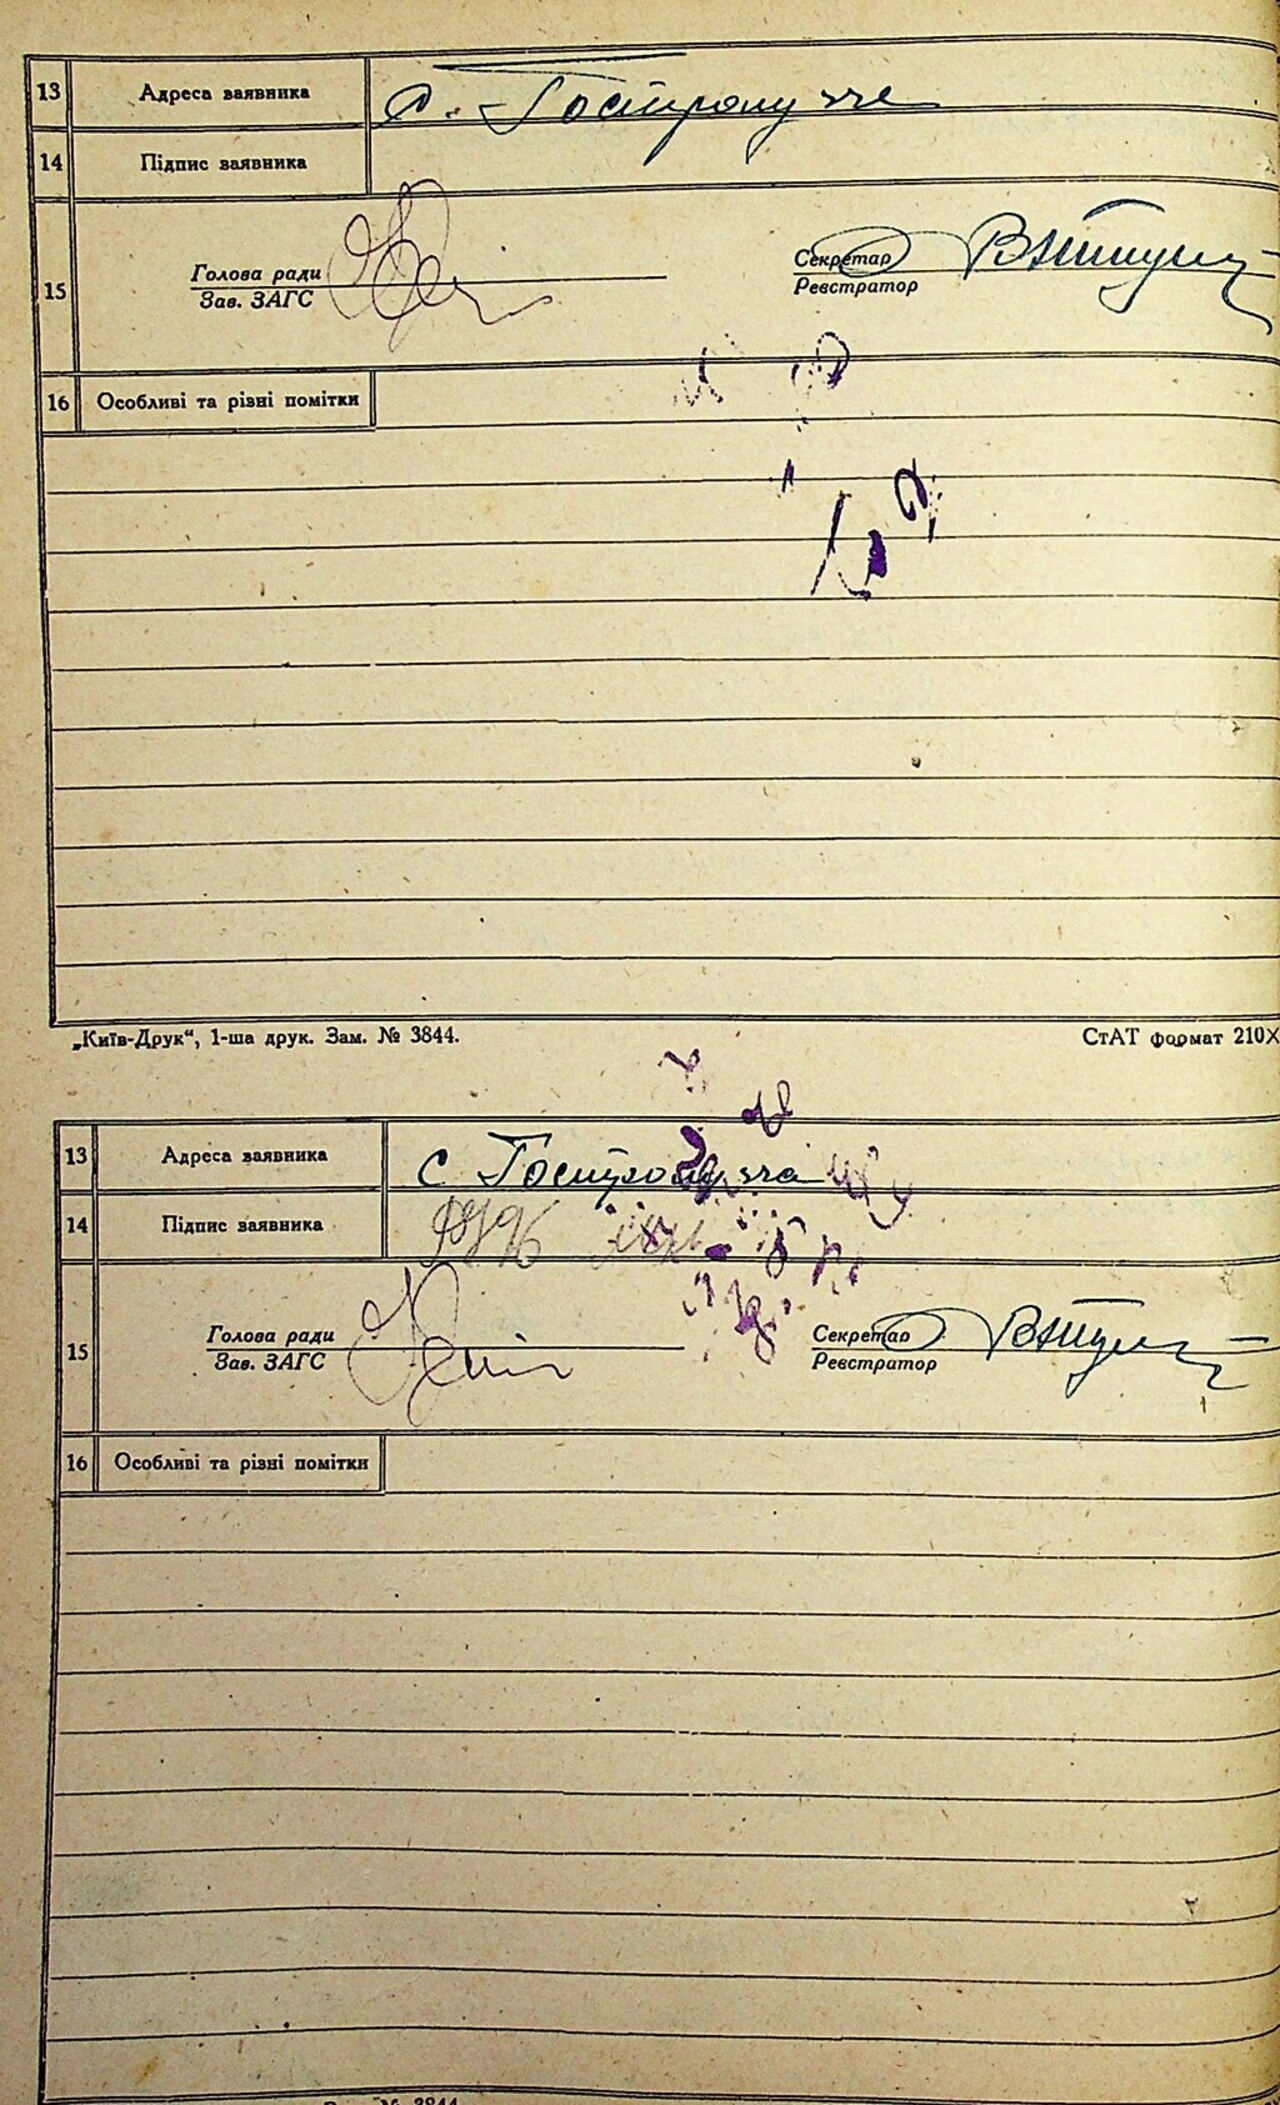 13 Адреса заявника с. Гостролуччє
14 Підпис заявника
Голова ради Секретар
15 Зав. ЗАГС Реєстратор
16 Особливі та різні помітки
„Київ-Друк“, 1-ша друк. Зам. № 3844. СтАТ формат 210X
13 Адреса заявника с Гостролучча
14 Підпис заявника
Голова ради Секретар
15 Зав. ЗАГС Реєстратор
16 Особливі та різні помітки
№ 3844